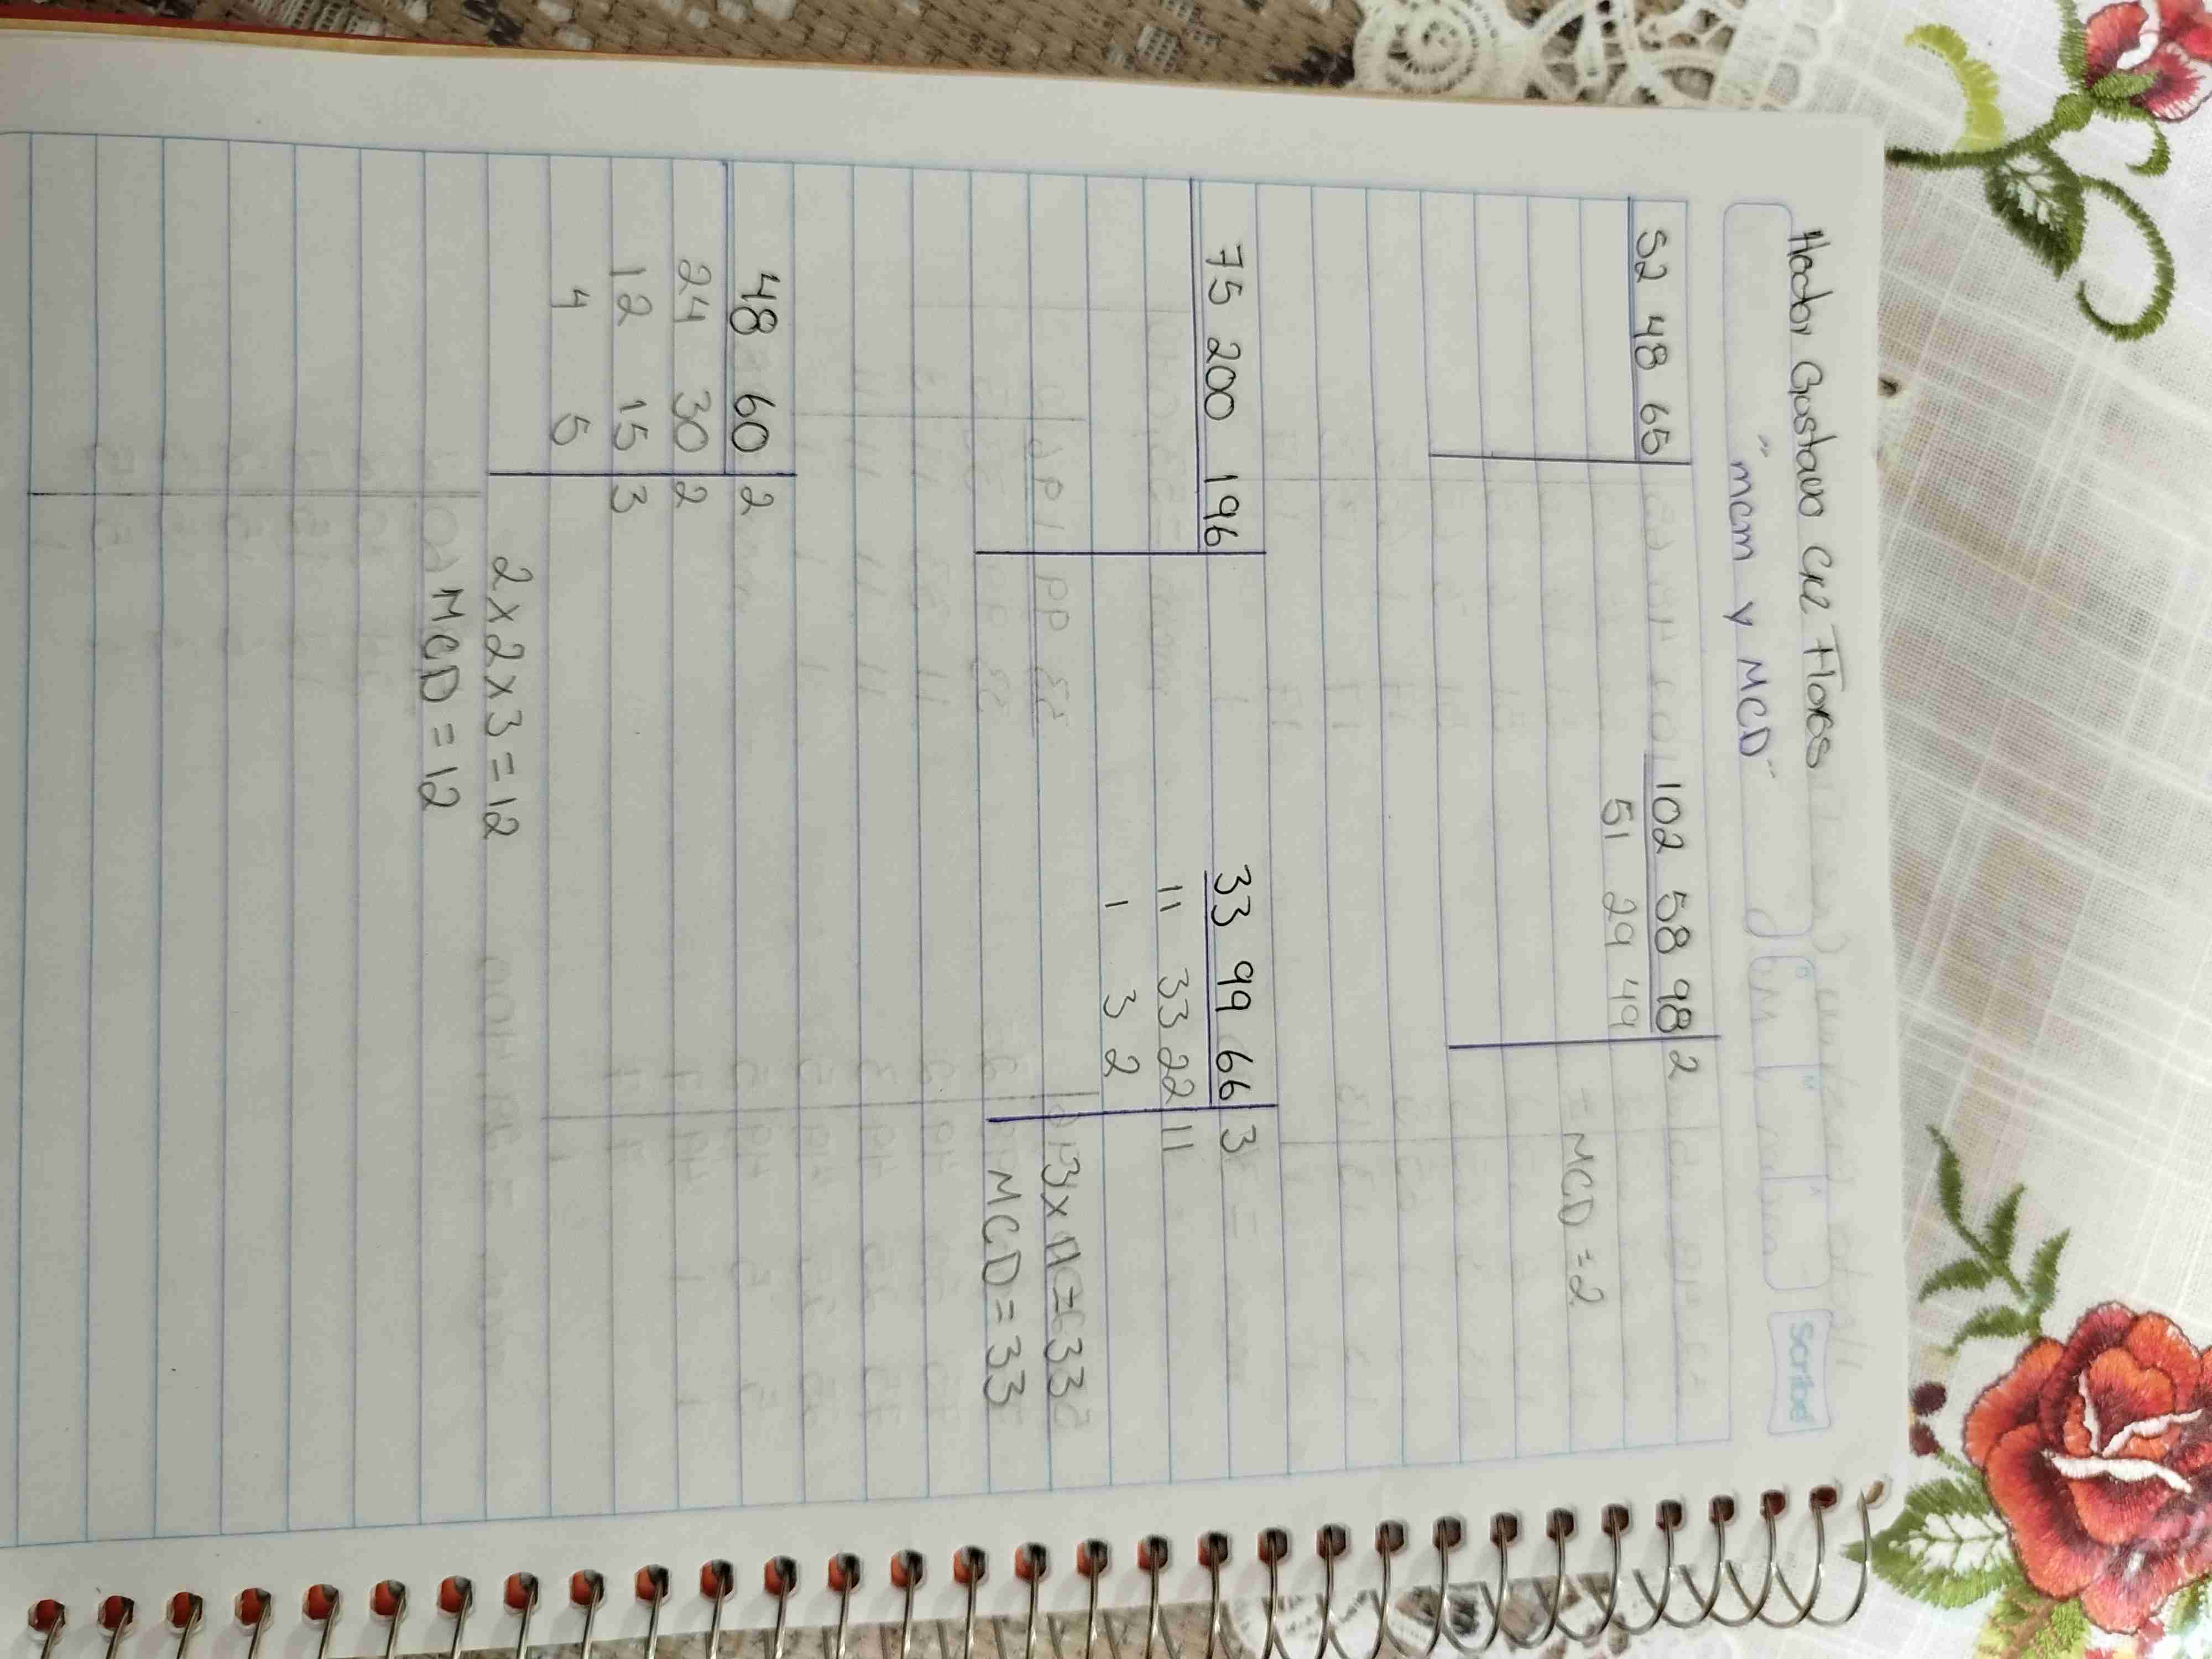 Hector Gustavo Cruz Flores
"mcm y MCD"
Scribe
52 48 65
102 58 98 2
51 29 49
MCD = 2
75 200 196
33 99 66 3
11 33 22 11
1 3 2
3x11=33
MCD=33
48 60 2
24 30 2
12 15 3
4 5
2x2x3=12
MCD=12